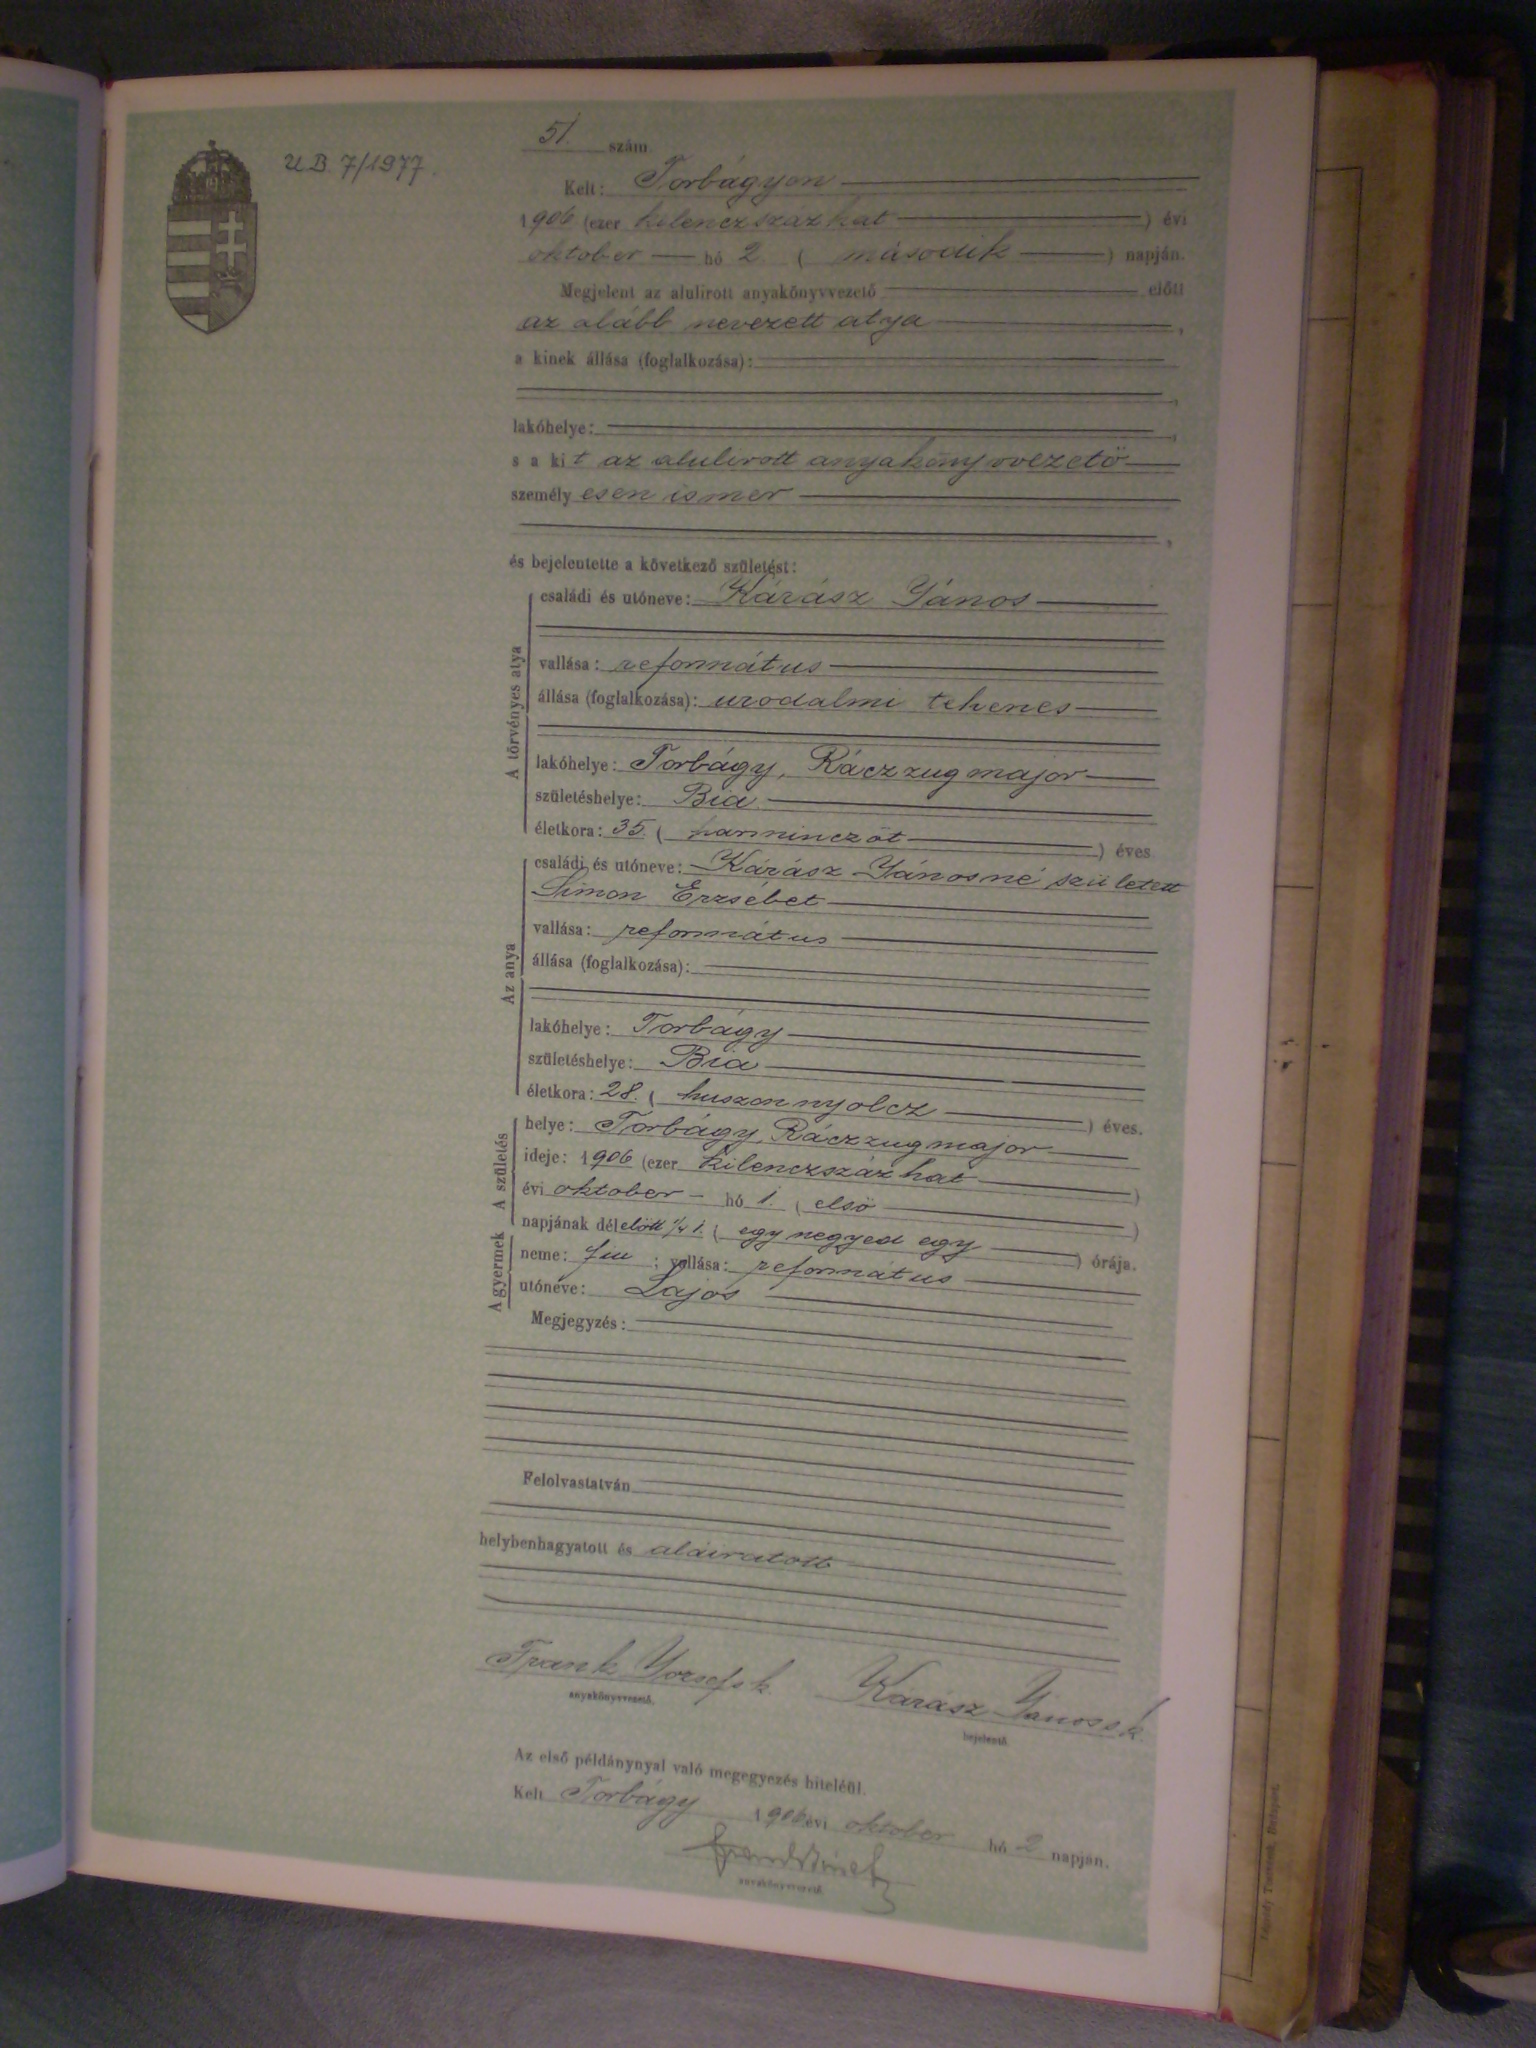 U.B. 7/1977.
51. szám
Kelt: Torbágyon
1906 (ezer kilenczszázhat) évi
oktober hó 2 (második) napján.
Megjelent az alulirott anyakönyvvezető előtt
az alább nevezett atya,
a kinek állása (foglalkozása):
,
lakóhelye:,
s a kit az alulirott anyakönyvvezető
személyesen ismer
,
és bejelentette a következő születést:
A törvényes atya
családi és utóneve: Kárász János
vallása: református
állása (foglalkozása): urodalmi tehenes
lakóhelye: Torbágy, Ráczzugmajor
születéshelye: Bia
életkora: 35. (harminczöt) éves
Az anya
családi és utóneve: Kárász Jánosné született
Simon Erzsébet
vallása: református
állása (foglalkozása):
lakóhelye: Torbágy
születéshelye: Bia
életkora: 28. (huszonnyolcz) éves.
A születés
helye: Torbágy, Ráczzugmajor
ideje: 1906 (ezer kilenczszázhat)
évi oktober - hó 1. (első)
napjának délelőtt 1/4 1. (egy negyed egy) órája.
A gyermek
neme: fiu; vallása: református
utóneve: Lajos
Megjegyzés:
Felolvastatván
helybenhagyatott és aláiratott
Frank József sk. Kárász János sk.
anyakönyvvezető. bejelentő.
Az első példánynyal való megegyezés hiteléül.
Kelt Torbágy 1906 évi oktober hó 2 napján.
anyakönyvvezető